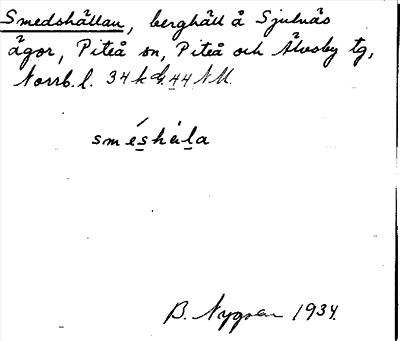 Smedshällan, berghäll å Sjulnäs
ägor, Piteå sn, Piteå och Älvsby tg,
Norrb. l. 34 k d. 44 NM.
sméshäla
B. Nygren 1934.